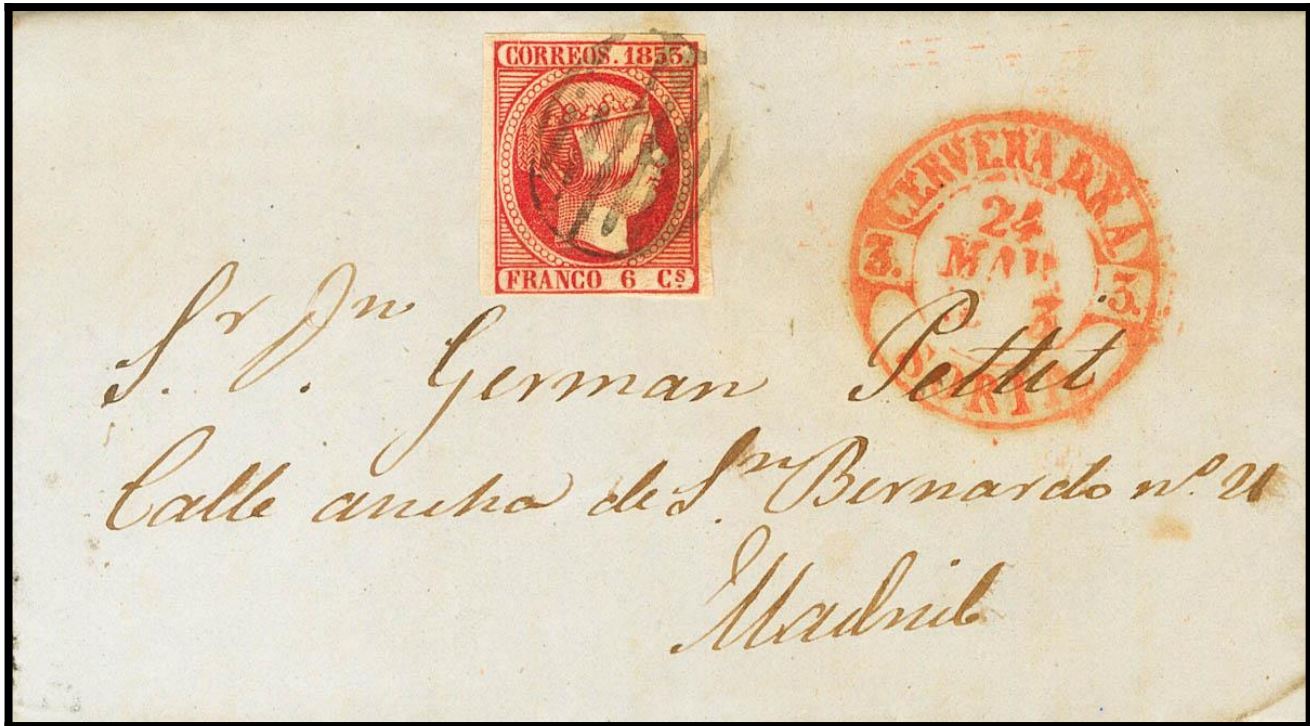 CORREOS. 1853.
FRANCO 6 Cs
CERVERA DE LA
24
MAR
3. 3.
3
SORIA
Sr Dn German Pettit
Calle ancha de Sn Bernardo nº. 21
Madrid